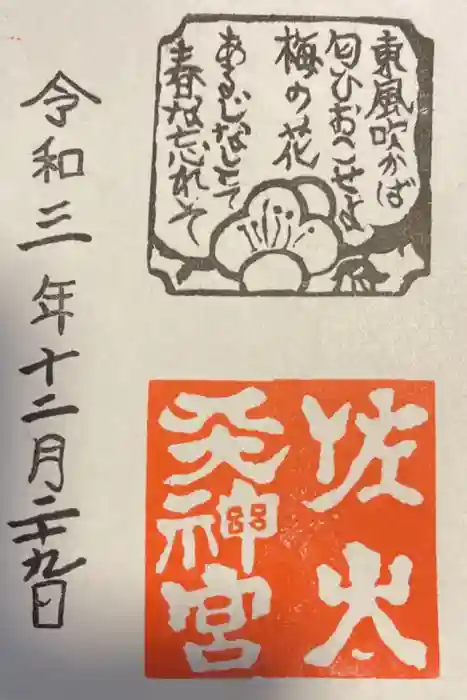 東風吹かば
匂ひおこせよ
梅の花
あるじなしとて
春な忘れそ
佐太
天神宮
令和三年十二月二十九日